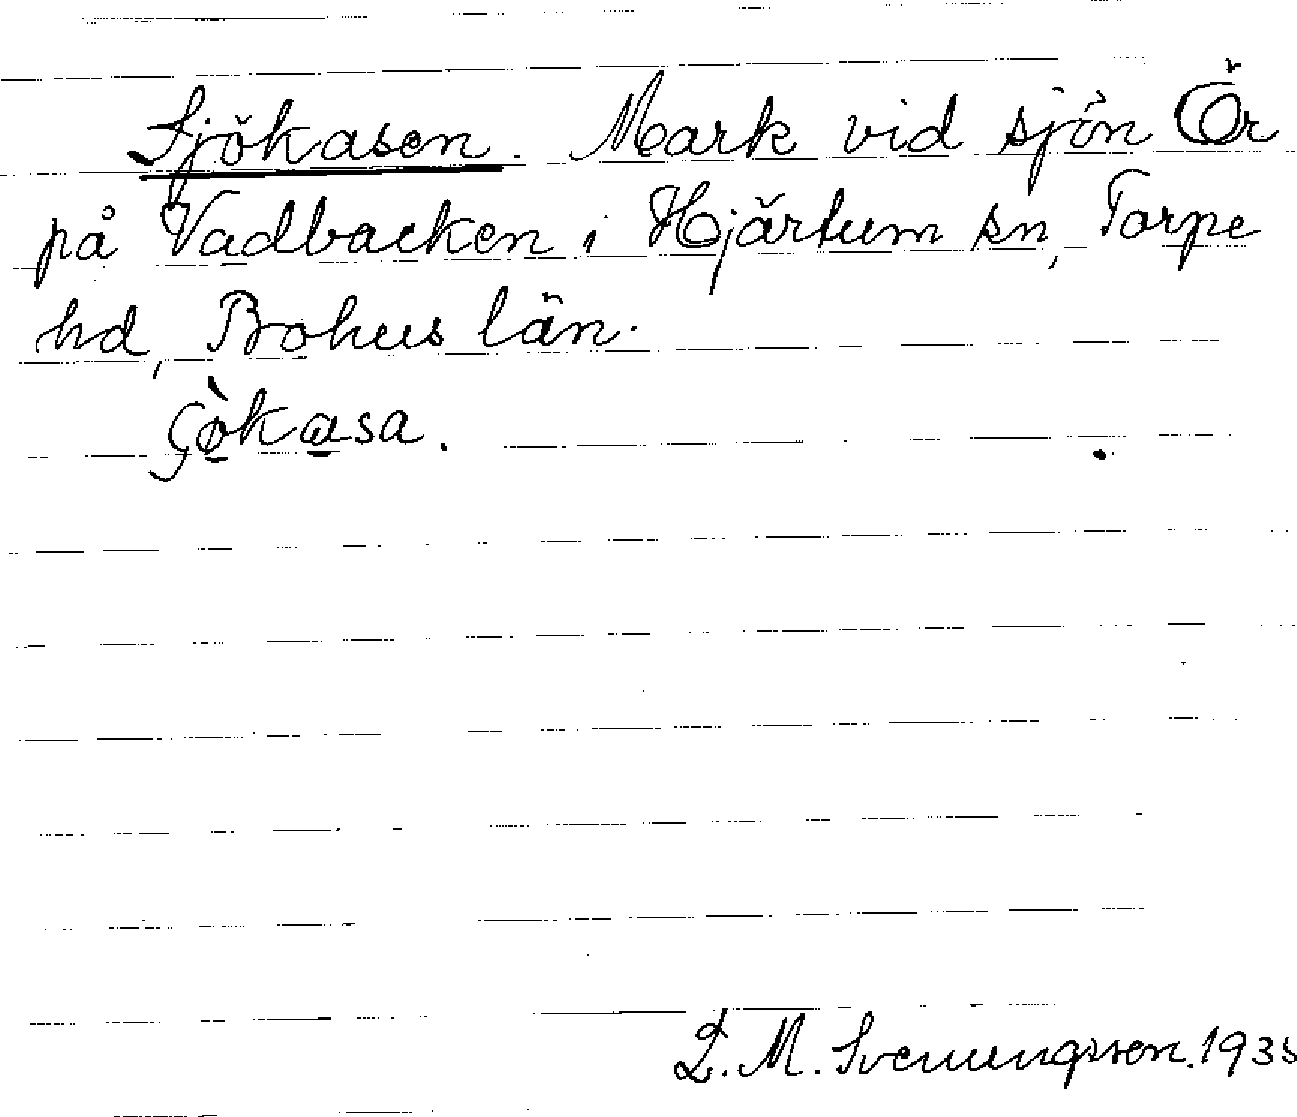 Sjökasen. Mark vid sjön Ör
på Vadbacken i Hjärtum sn, Torpe
hd, Bohus län.
Çø̀kasa.
L. M. Svenungsson. 1935